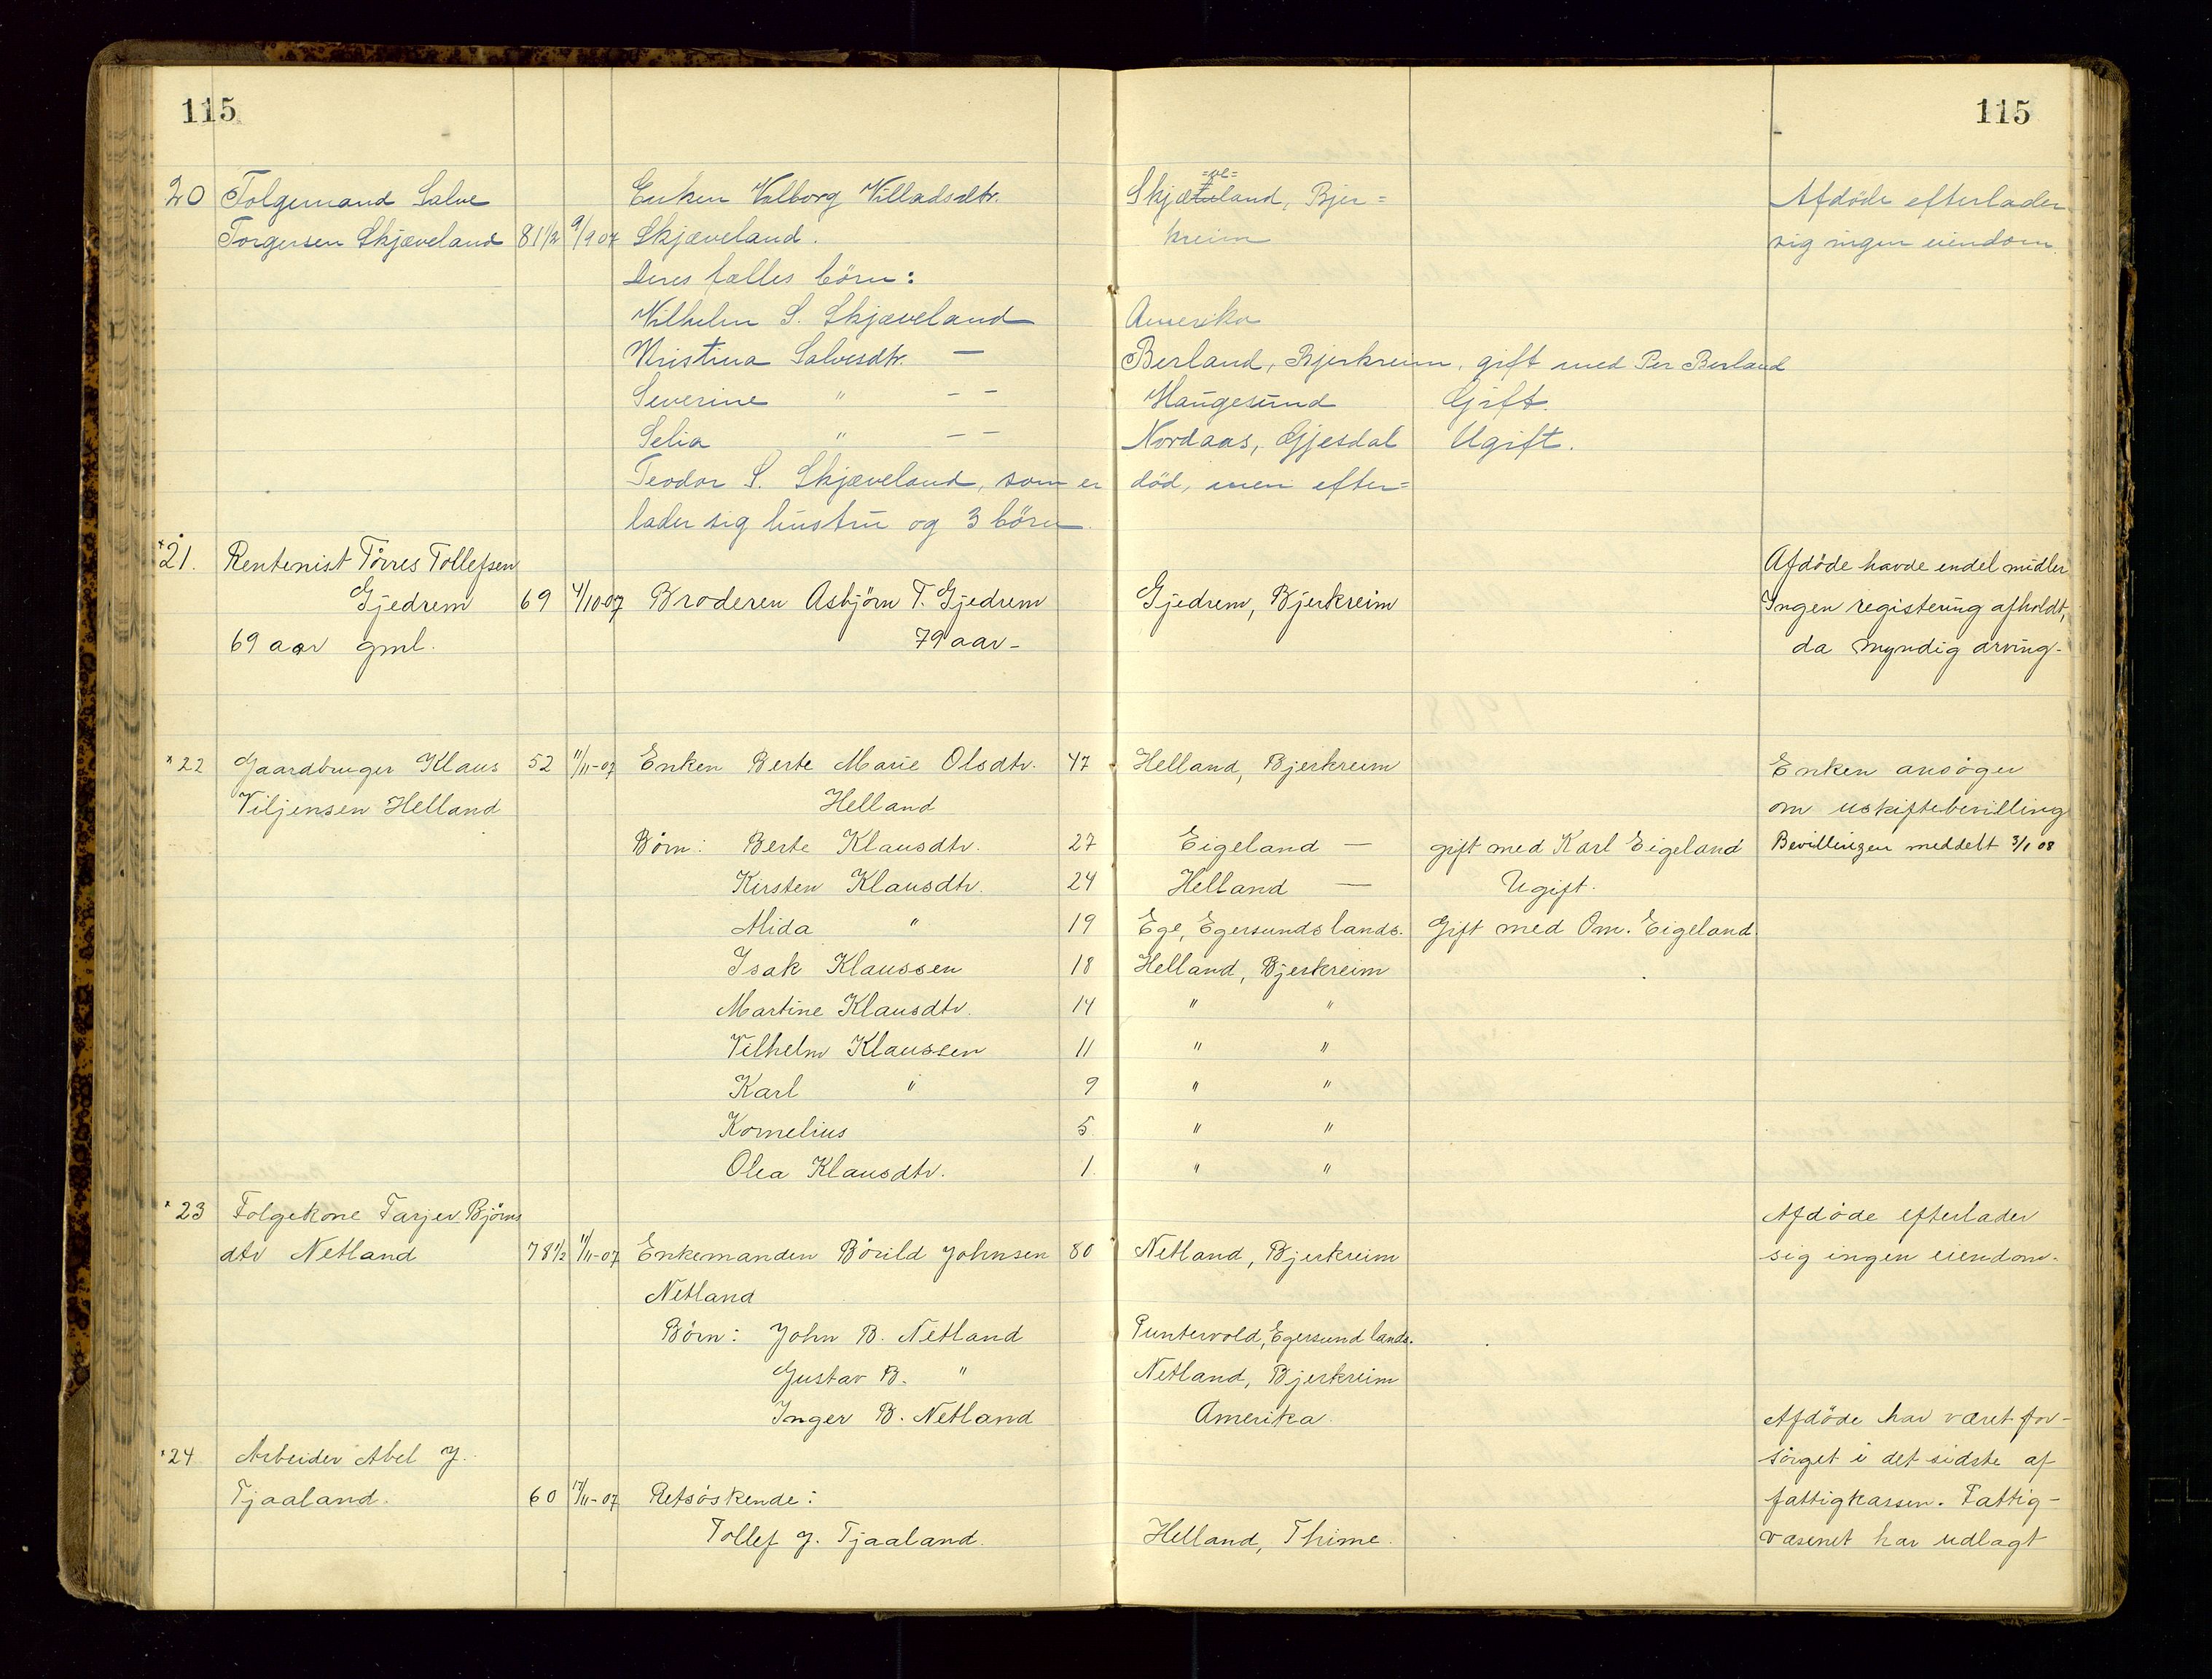 115 115
20 Folgemand Salve Enken Valborg Villadsdtr. Skjæveland, Bjer= Afdöde efterlader
Torgersen Skjæveland 81½ 9/9 07 Skjæveland. kreim sig ingen eiendom.
Deres fælles börn:
Vilhelm S. Skjæveland Amerika
Kristina Salvesdtr. — Berland, Bjerkreim, gift med Per Berland
Severine " — — Haugesund Gift.
Selia " — — Nordaas, Gjesdal Ugift.
Teodor S. Skjæveland, som er död, men efter=
lader sig hustru og 3 börn.
×21. Rentenist Törres Tollefsen Afdöde havde endel midler
Gjedrem 69 4/10-07 Broderen Asbjörn T. Gjedrem Gjedrem, Bjerkreim Ingen registering afholdt,
69 aar gml. 79 aar - da myndig arving-
×22 Gaardbruger Klaus 52 11/11-07 Enken Berte Marie Olsdtr. 47 Helland, Bjerkreim Enken ansöger
Viljensen Helland Helland om uskiftebevilling
Börn: Berte Klausdtr. 27 Eigeland — gift med Karl Eigeland Bevillingen meddelt 3/1 08
Kirsten Klausdtr. 24 Helland — Ugift.
Mida " 19 Ege, Egersunds lands. Gift med Om. Eigeland.
Isak Klaussen 18 Helland, Bjerkreim
Martine Klausdtr. 14 " "
Vilhelm Klaussen 11 " "
Karl " 9 " "
Kornelius 5 " "
Olea Klausdtr. 1. " "
×23 Folgekone Tarjer Björns Afdöde efterlader
dtr Netland 78½ 11/11-07 Enkemanden Börild Johnsen 80 Netland, Bjerkreim sig ingen eiendom.
Netland
Börn: John B. Netland Puntervold, Egersund lands.
Gustav B. " Netland, Bjerkreim
Inger B. Netland Amerika. Afdöde har været for-
×24 Arbeider Abel J. sörget i det sidste af
Tjaaland. 60 17/11-07 Retsöskende: fattigkassen. Fattig-
Tollef J. Tjaaland. Helland, Thime. væsenet har udlagt